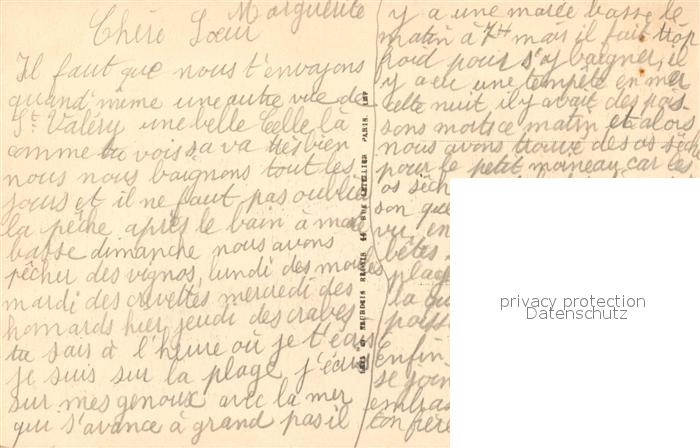 Marguerite
Chère Sœur
Il faut que nous t'envoyons
quand même une autre vue de
St Valéry une belle celle là
comme tu vois sa va très bien
nous nous baignons tout les
jours et il ne faut pas oublier
la pêche après le bain à marée
basse dimanche nous avons
pêcher des vignos, lundi des moules
mardi des crevettes mercredi des
homards hier jeudi des crabes
tu sais à l'heure où je t'écris
je suis sur la plage j'écris
sur mes genoux avec la mer
qui s'avance à grand pas il
y a une marée basse le
matin à 7H mais il fait trop
froid pour s'y baigner, il
y a eu une tempête en mer
cette nuit il y avait des pois
sons morts ce matin et alors
nous avons trouvé des os sèche
pour le petit moineau car les
os sèch
son que
vu en
bêtes
plage
la qu
poiss
Enfin
se join
embras
ton frère
PARIS
privacy protection
Datenschutz